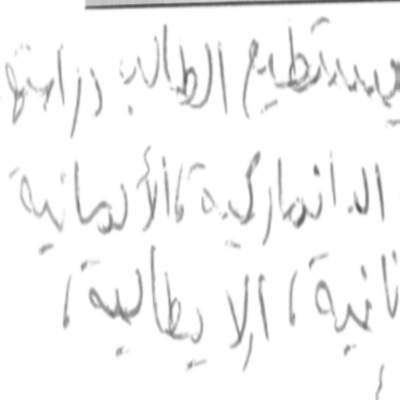 يستطيع الطالب دراسة
الدانماركية، الألمانية
الإيطالية،